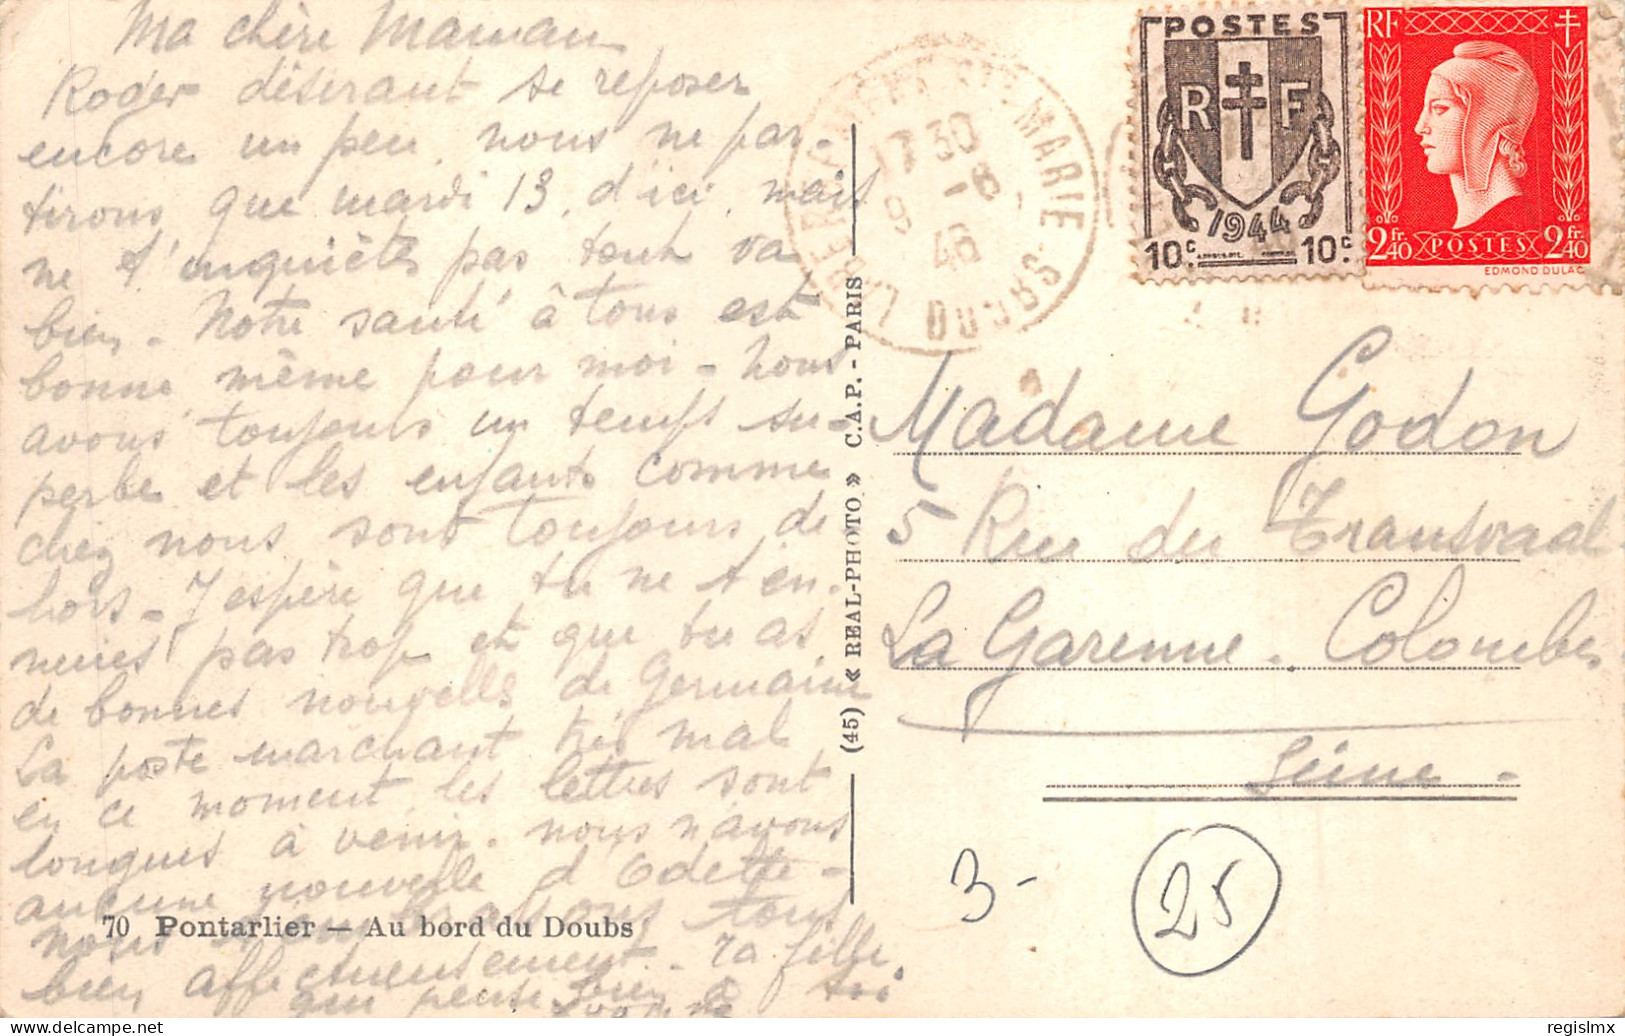 Ma chère Maman
Roger désirant se reposer
encore un peu, nous ne par-
tirons que mardi 13, d'ici, mais
ne t'inquiètes pas tout va
bien. Notre santé à tous est
bonne même pour moi - Nous
avons toujours un temps su-
perbe et les enfants comme
chez nous sont toujours de
hors - J'espère que tu ne t'en-
nuies pas trop et que tu as
de bonnes nouvelles de Germaine
La poste marchant très mal
en ce moment les lettres sont
longues à venir. nous n'avons
aucune nouvelle d'Odette -
nous t'embrassons tous
bien affectueusement. Ta fille
qui pense bien à toi
70 Pontarlier — Au bord du Doubs
(45) « REAL-PHOTO » C.A.P. - PARIS
STE MARIE
17 30
9 - 8
46
DOUBS
POSTES
R F
1944
10c. 10c.
RF
2fr.40 POSTES 2fr.40
EDMOND DULAC
Madame Godon
5 Rue du Transvaal
La Garenne. Colombes
Seine -
3 -
25
www.delcampe.net
regislmx